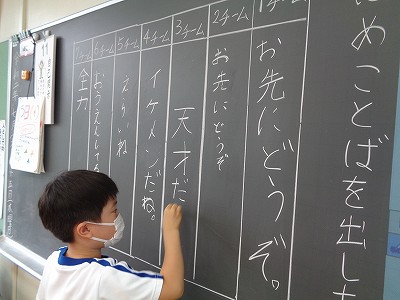 めことばを出した
1チーム
お先にどうぞ。
2チーム
お先にどうぞ
3チーム
天才だ
4チーム
イケメンだね。
5チーム
えらいね
6チーム
おうえんしてる
7チーム
全力
11